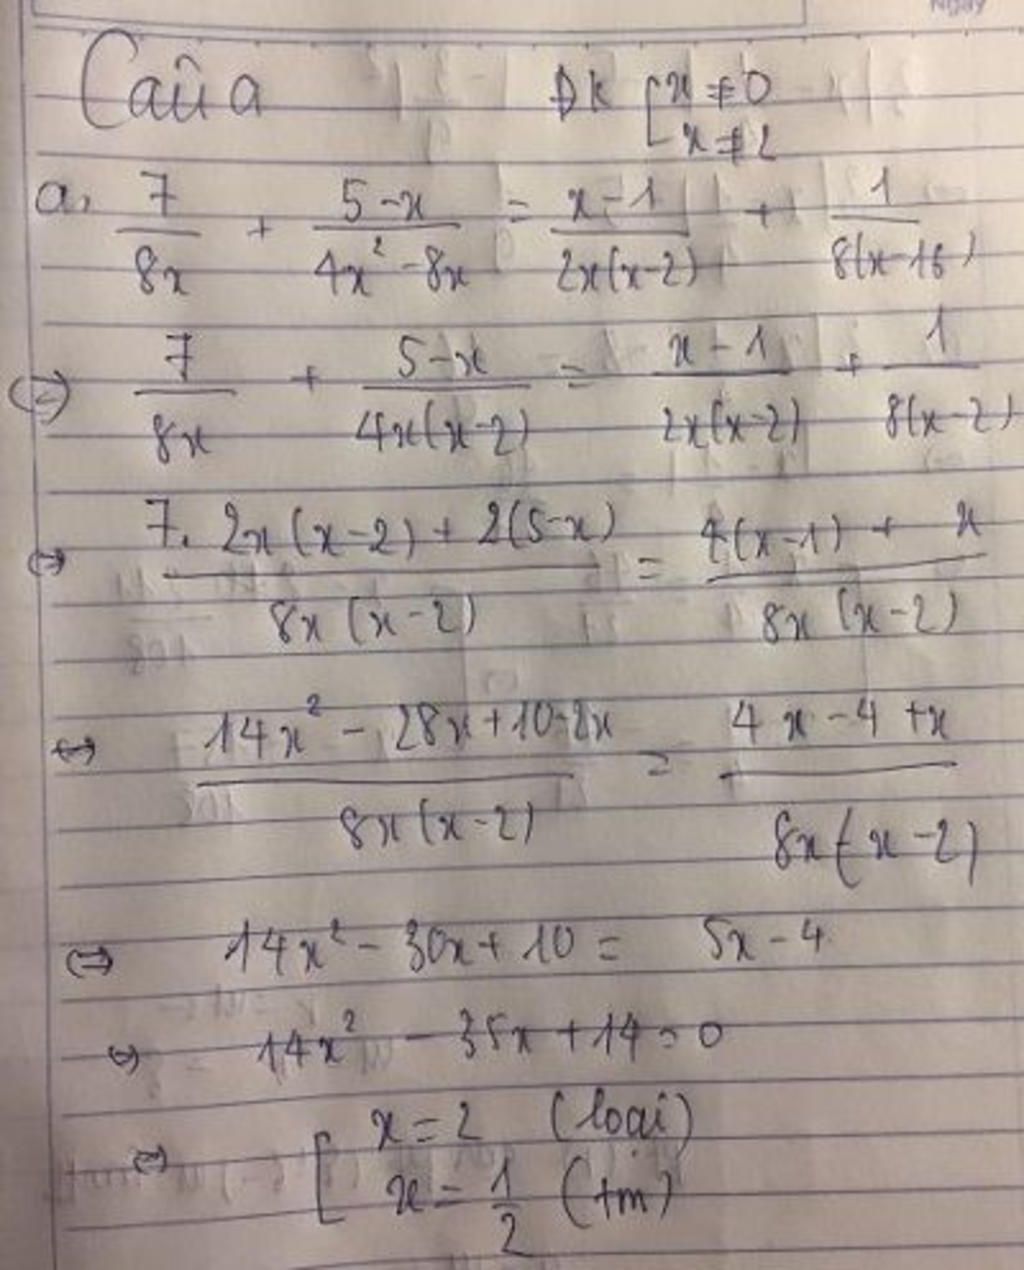 Câu a ĐK [x ≠ 0
x ≠ 2
a, 7/8x + (5-x)/(4x² - 8x) = (x-1)/(2x(x-2)) + 1/(8(x-16)
(=) 7/8x + (5-x)/(4x(x-2)) = (x-1)/(2x(x-2)) + 1/(8(x-2))
(=) (7. 2x(x-2) + 2(5-x))/(8x(x-2)) = (4(x-1) + x)/(8x(x-2))
(=) (14x² - 28x + 10 - 2x)/(8x(x-2)) = (4x - 4 + x)/(8x(x-2))
(=) 14x² - 30x + 10 = 5x - 4
(=) 14x² - 35x + 14 = 0
(=) [x = 2 (loại)
x = 1/2 (tm)